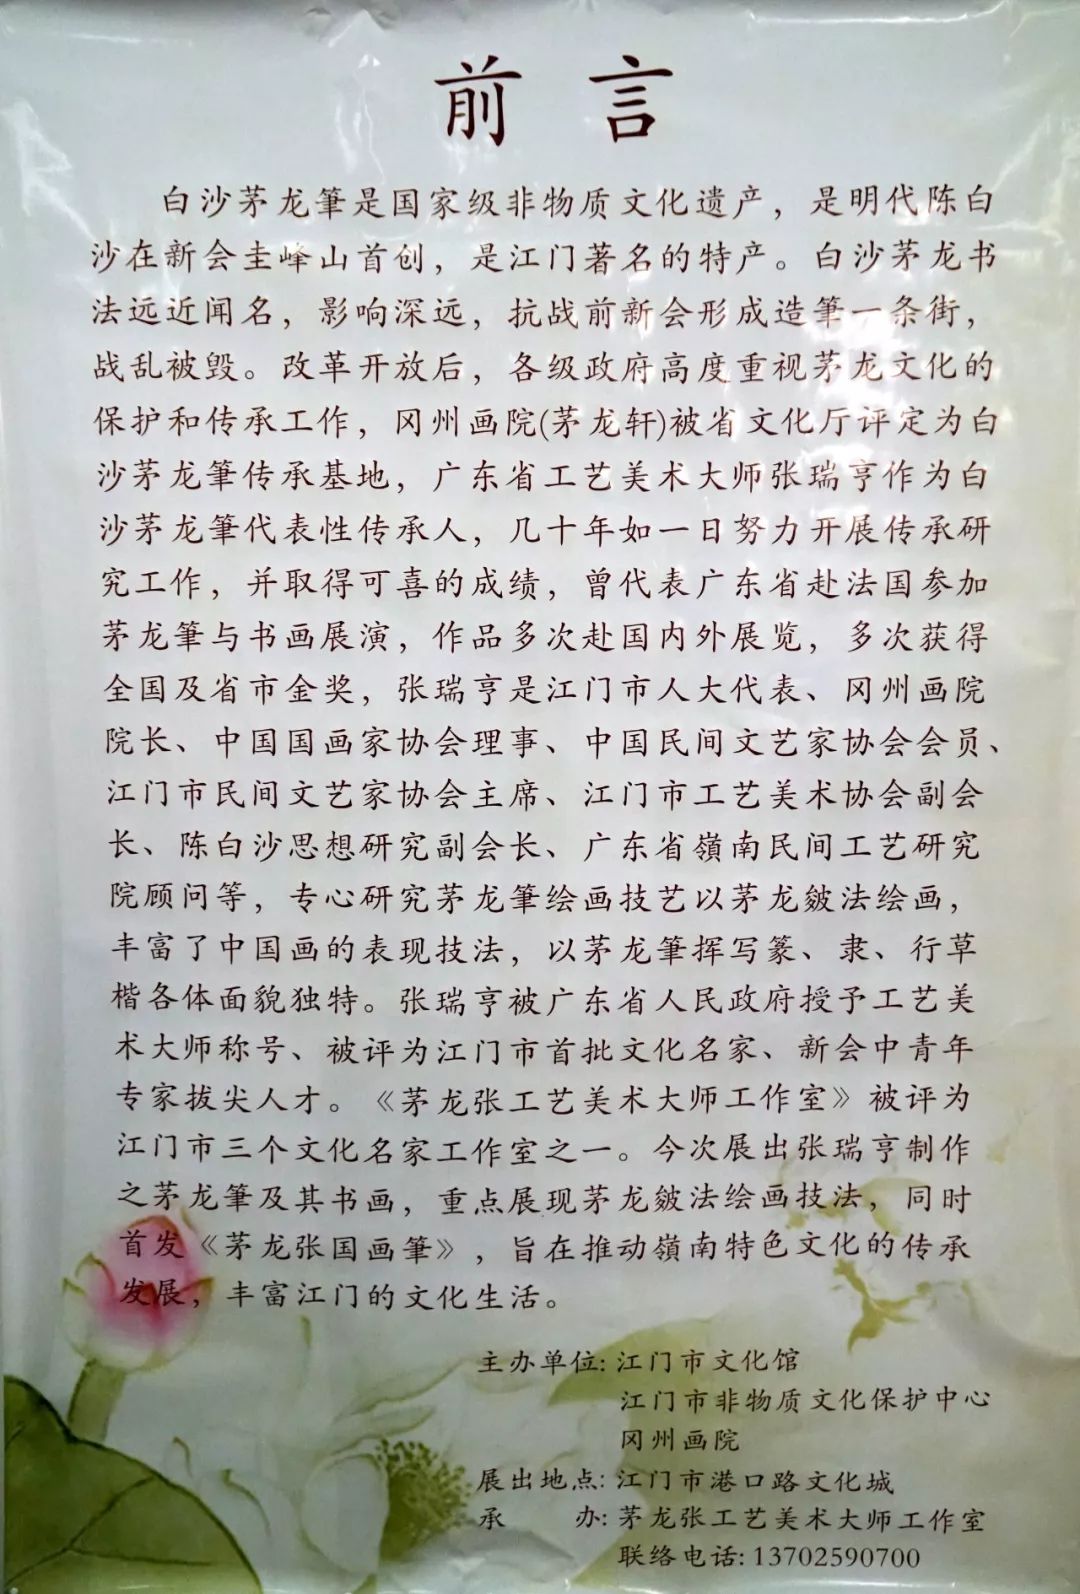 前言
白沙茅龙筆是国家级非物质文化遗产，是明代陈白
沙在新会圭峰山首创，是江门著名的特产。白沙茅龙书
法远近闻名，影响深远，抗战前新会形成造筆一条街，
战乱被毁。改革开放后，各级政府高度重视茅龙文化的
保护和传承工作，冈州画院(茅龙轩)被省文化厅评定为白
沙茅龙筆传承基地，广东省工艺美术大师张瑞亨作为白
沙茅龙筆代表性传承人，几十年如一日努力开展传承研
究工作，并取得可喜的成绩，曾代表广东省赴法国参加
茅龙筆与书画展演，作品多次赴国内外展览，多次获得
全国及省市金奖，张瑞亨是江门市人大代表、冈州画院
院长、中国国画家协会理事、中国民间文艺家协会会员、
江门市民间文艺家协会主席、江门市工艺美术协会副会
长、陈白沙思想研究副会长、广东省嶺南民间工艺研究
院顾问等，专心研究茅龙筆绘画技艺以茅龙皴法绘画，
丰富了中国画的表现技法，以茅龙筆挥写篆、隶、行草
楷各体面貌独特。张瑞亨被广东省人民政府授予工艺美
术大师称号、被评为江门市首批文化名家、新会中青年
专家拔尖人才。《茅龙张工艺美术大师工作室》被评为
江门市三个文化名家工作室之一。今次展出张瑞亨制作
之茅龙筆及其书画，重点展现茅龙皴法绘画技法，同时
首发《茅龙张国画筆》，旨在推动嶺南特色文化的传承
发展，丰富江门的文化生活。
主办单位:江门市文化馆
江门市非物质文化保护中心
冈州画院
展出地点:江门市港口路文化城
承办:茅龙张工艺美术大师工作室
联络电话:13702590700